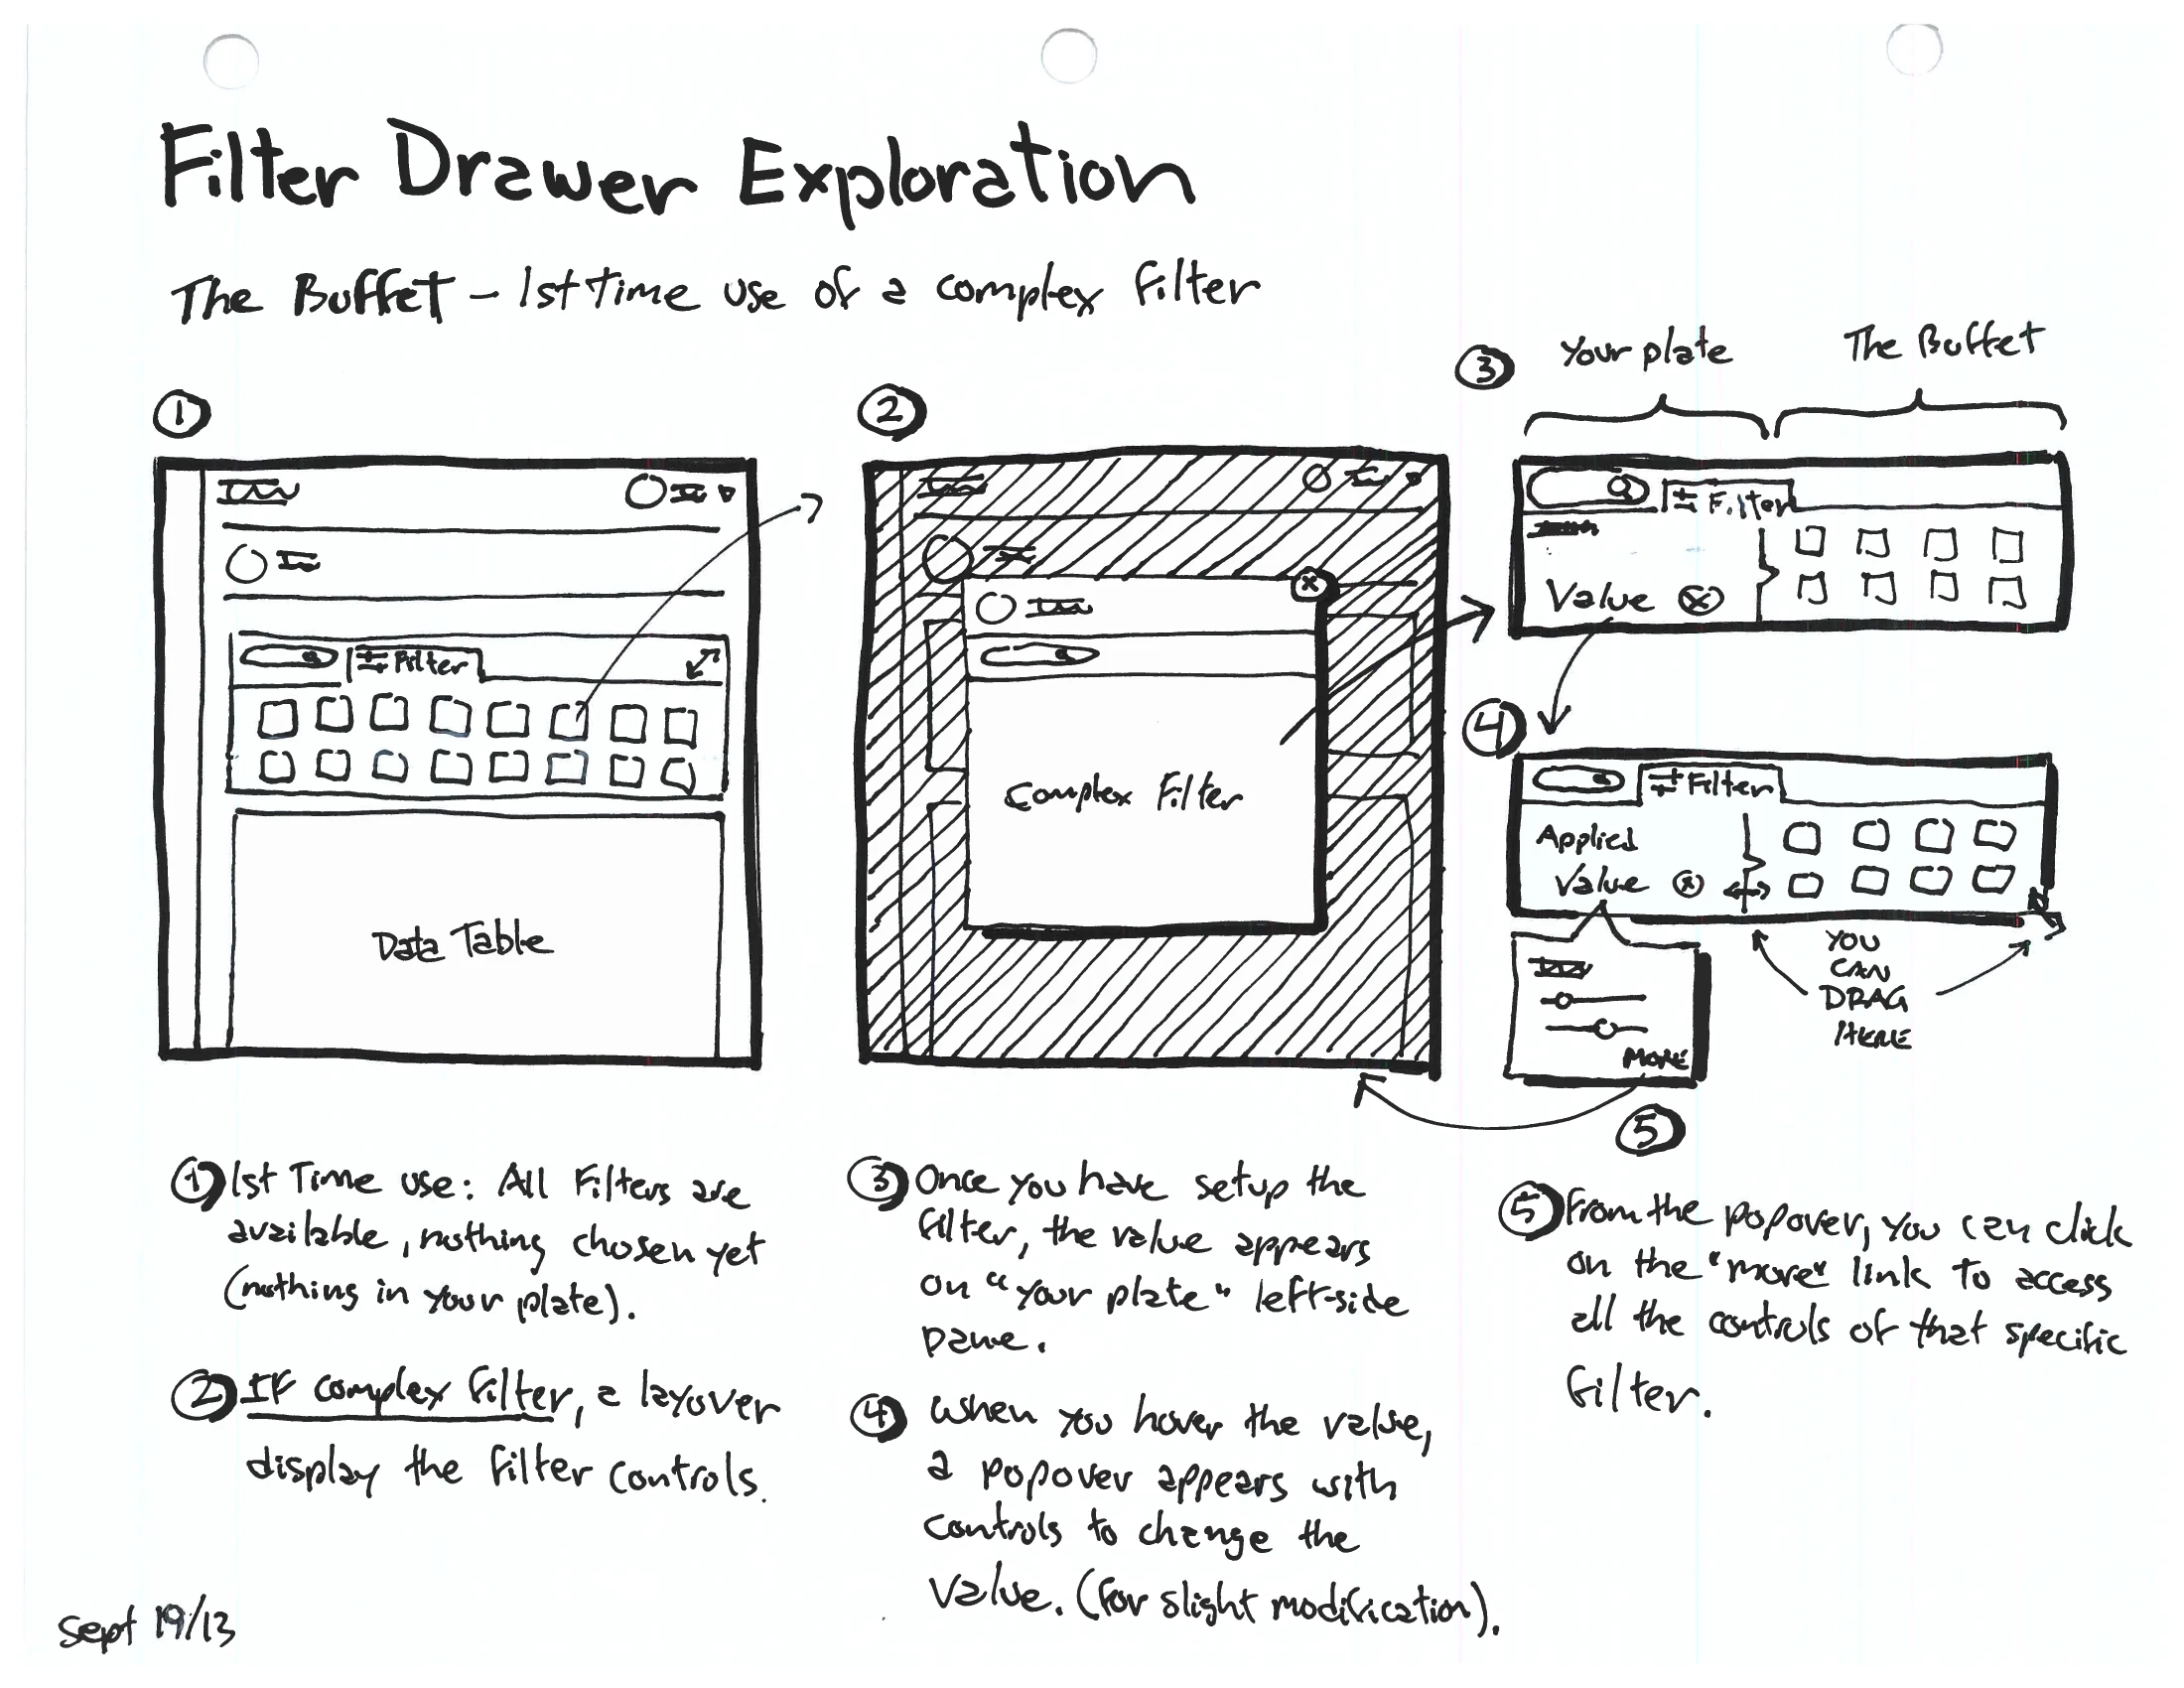 Filter Drawer Exploration
The Buffet – 1st Time use of a complex filter
1
Filter
Data Table
2
Complex Filter
3
Your plate
The Buffet
Filter
Value
4
Filter
Applied
Value
YOU
CAN
DRAG
HERE
MORE
5
1 1st Time use: All Filters are
available, nothing chosen yet
(nothing in your plate).
2 IF complex filter, a layover
display the filter controls.
3 Once you have setup the
filter, the value appears
on "your plate" left-side
pane.
4 When you hover the value,
a popover appears with
controls to change the
value. (for slight modification).
5 From the popover, you can click
on the "more" link to access
all the controls of that specific
filter.
Sept 19/13